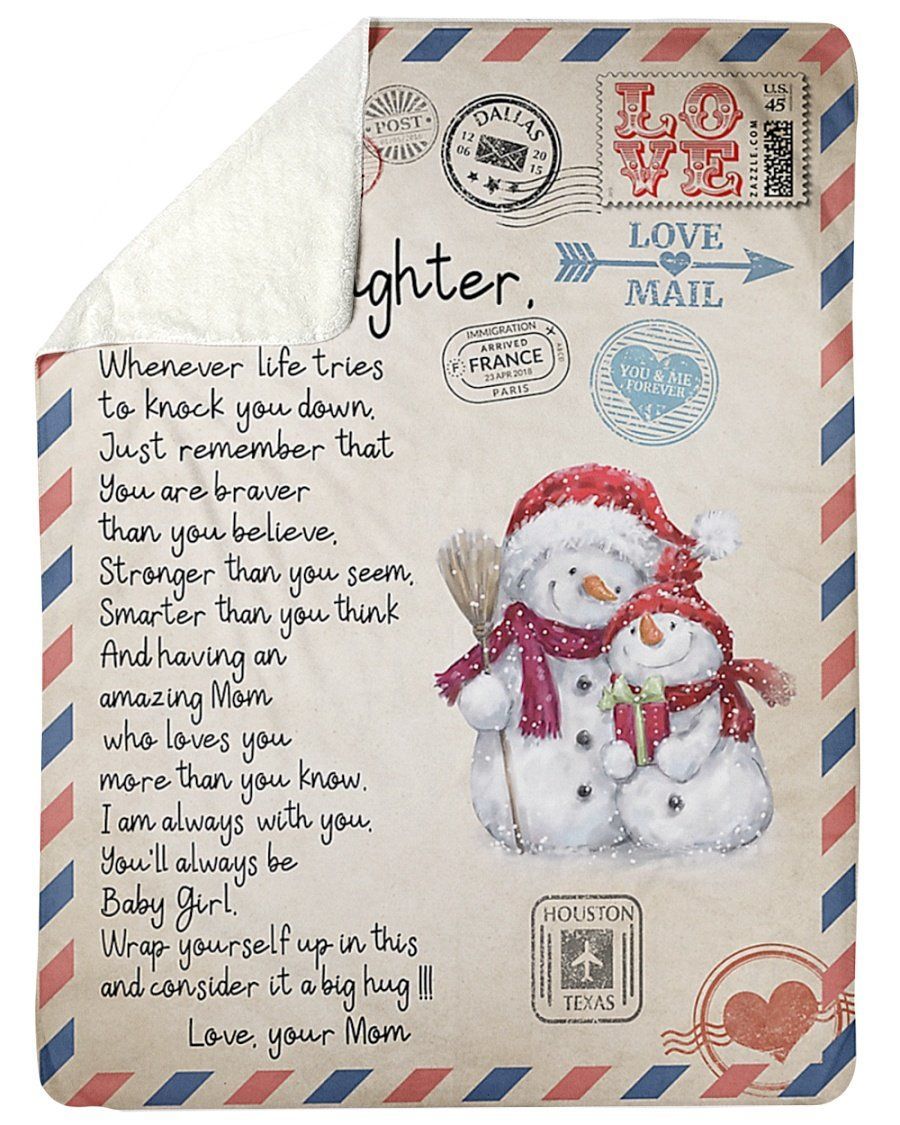 POST
DALLAS
12 20
06 15
LOVE
U.S.
45
ZAZZLE.COM
LOVE
MAIL
ghter,
IMMIGRATION
ARRIVED
F FRANCE
23 APR 2018
PARIS
YOU & ME
FOREVER
Whenever life tries
to knock you down,
Just remember that
You are braver
than you believe,
Stronger than you seem,
Smarter than you think
And having an
amazing Mom
who loves you
more than you know.
I am always with you,
You'll always be
Baby Girl,
Wrap yourself up in this
and consider it a big hug !!!
Love, your Mom
HOUSTON
TEXAS